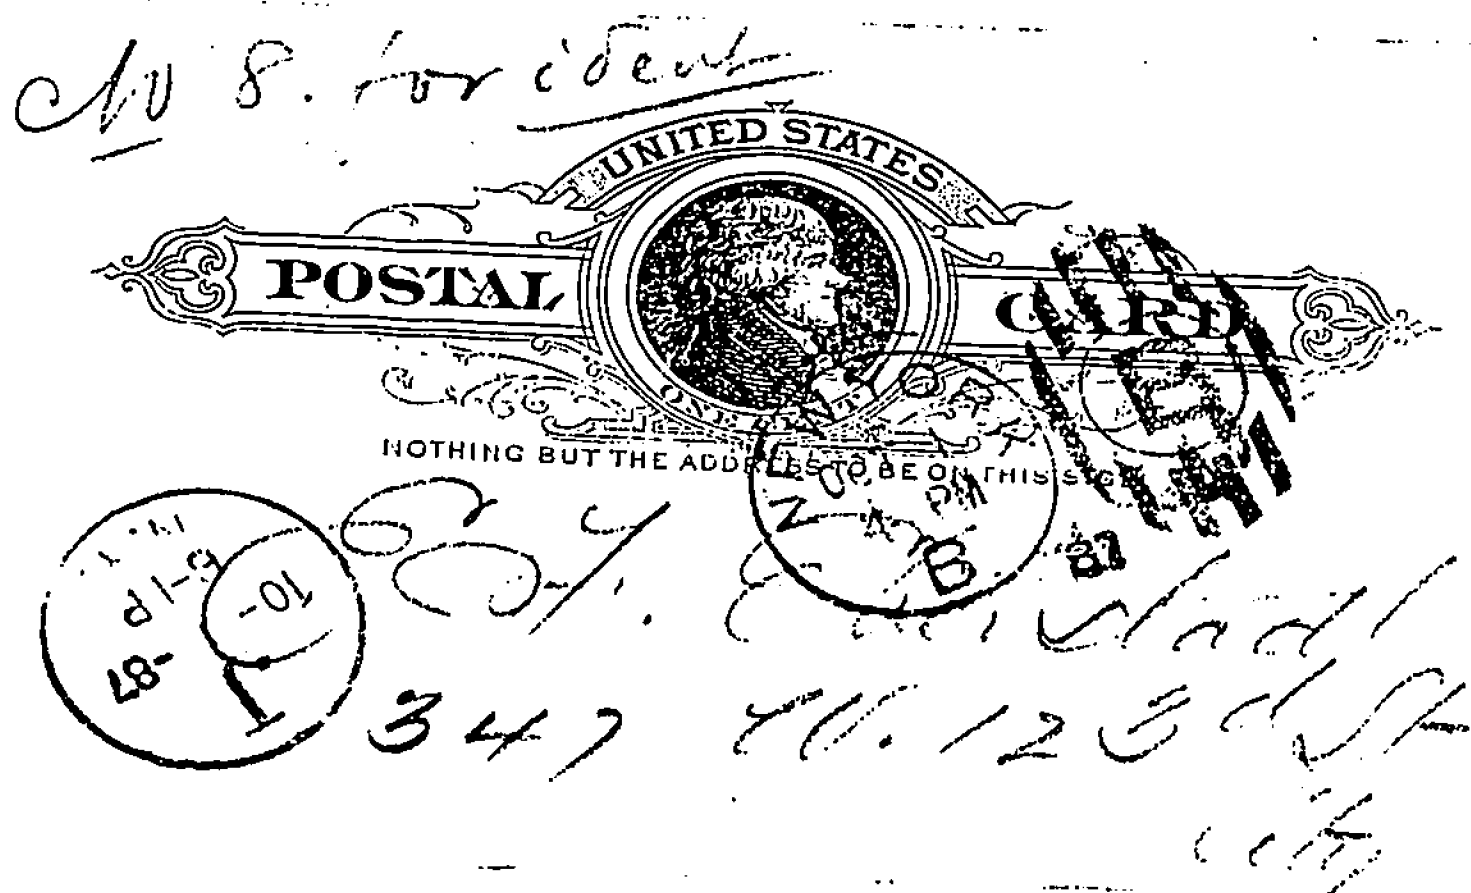 No 8. for ident
UNITED STATES
POSTAL CARD
ONE CENT
NOTHING BUT THE ADDRESS TO BE ON THIS SIDE
NEW YORK
PM
B
87
N.Y.
6-1P
10-
-87
T
347 W. 123d St
City